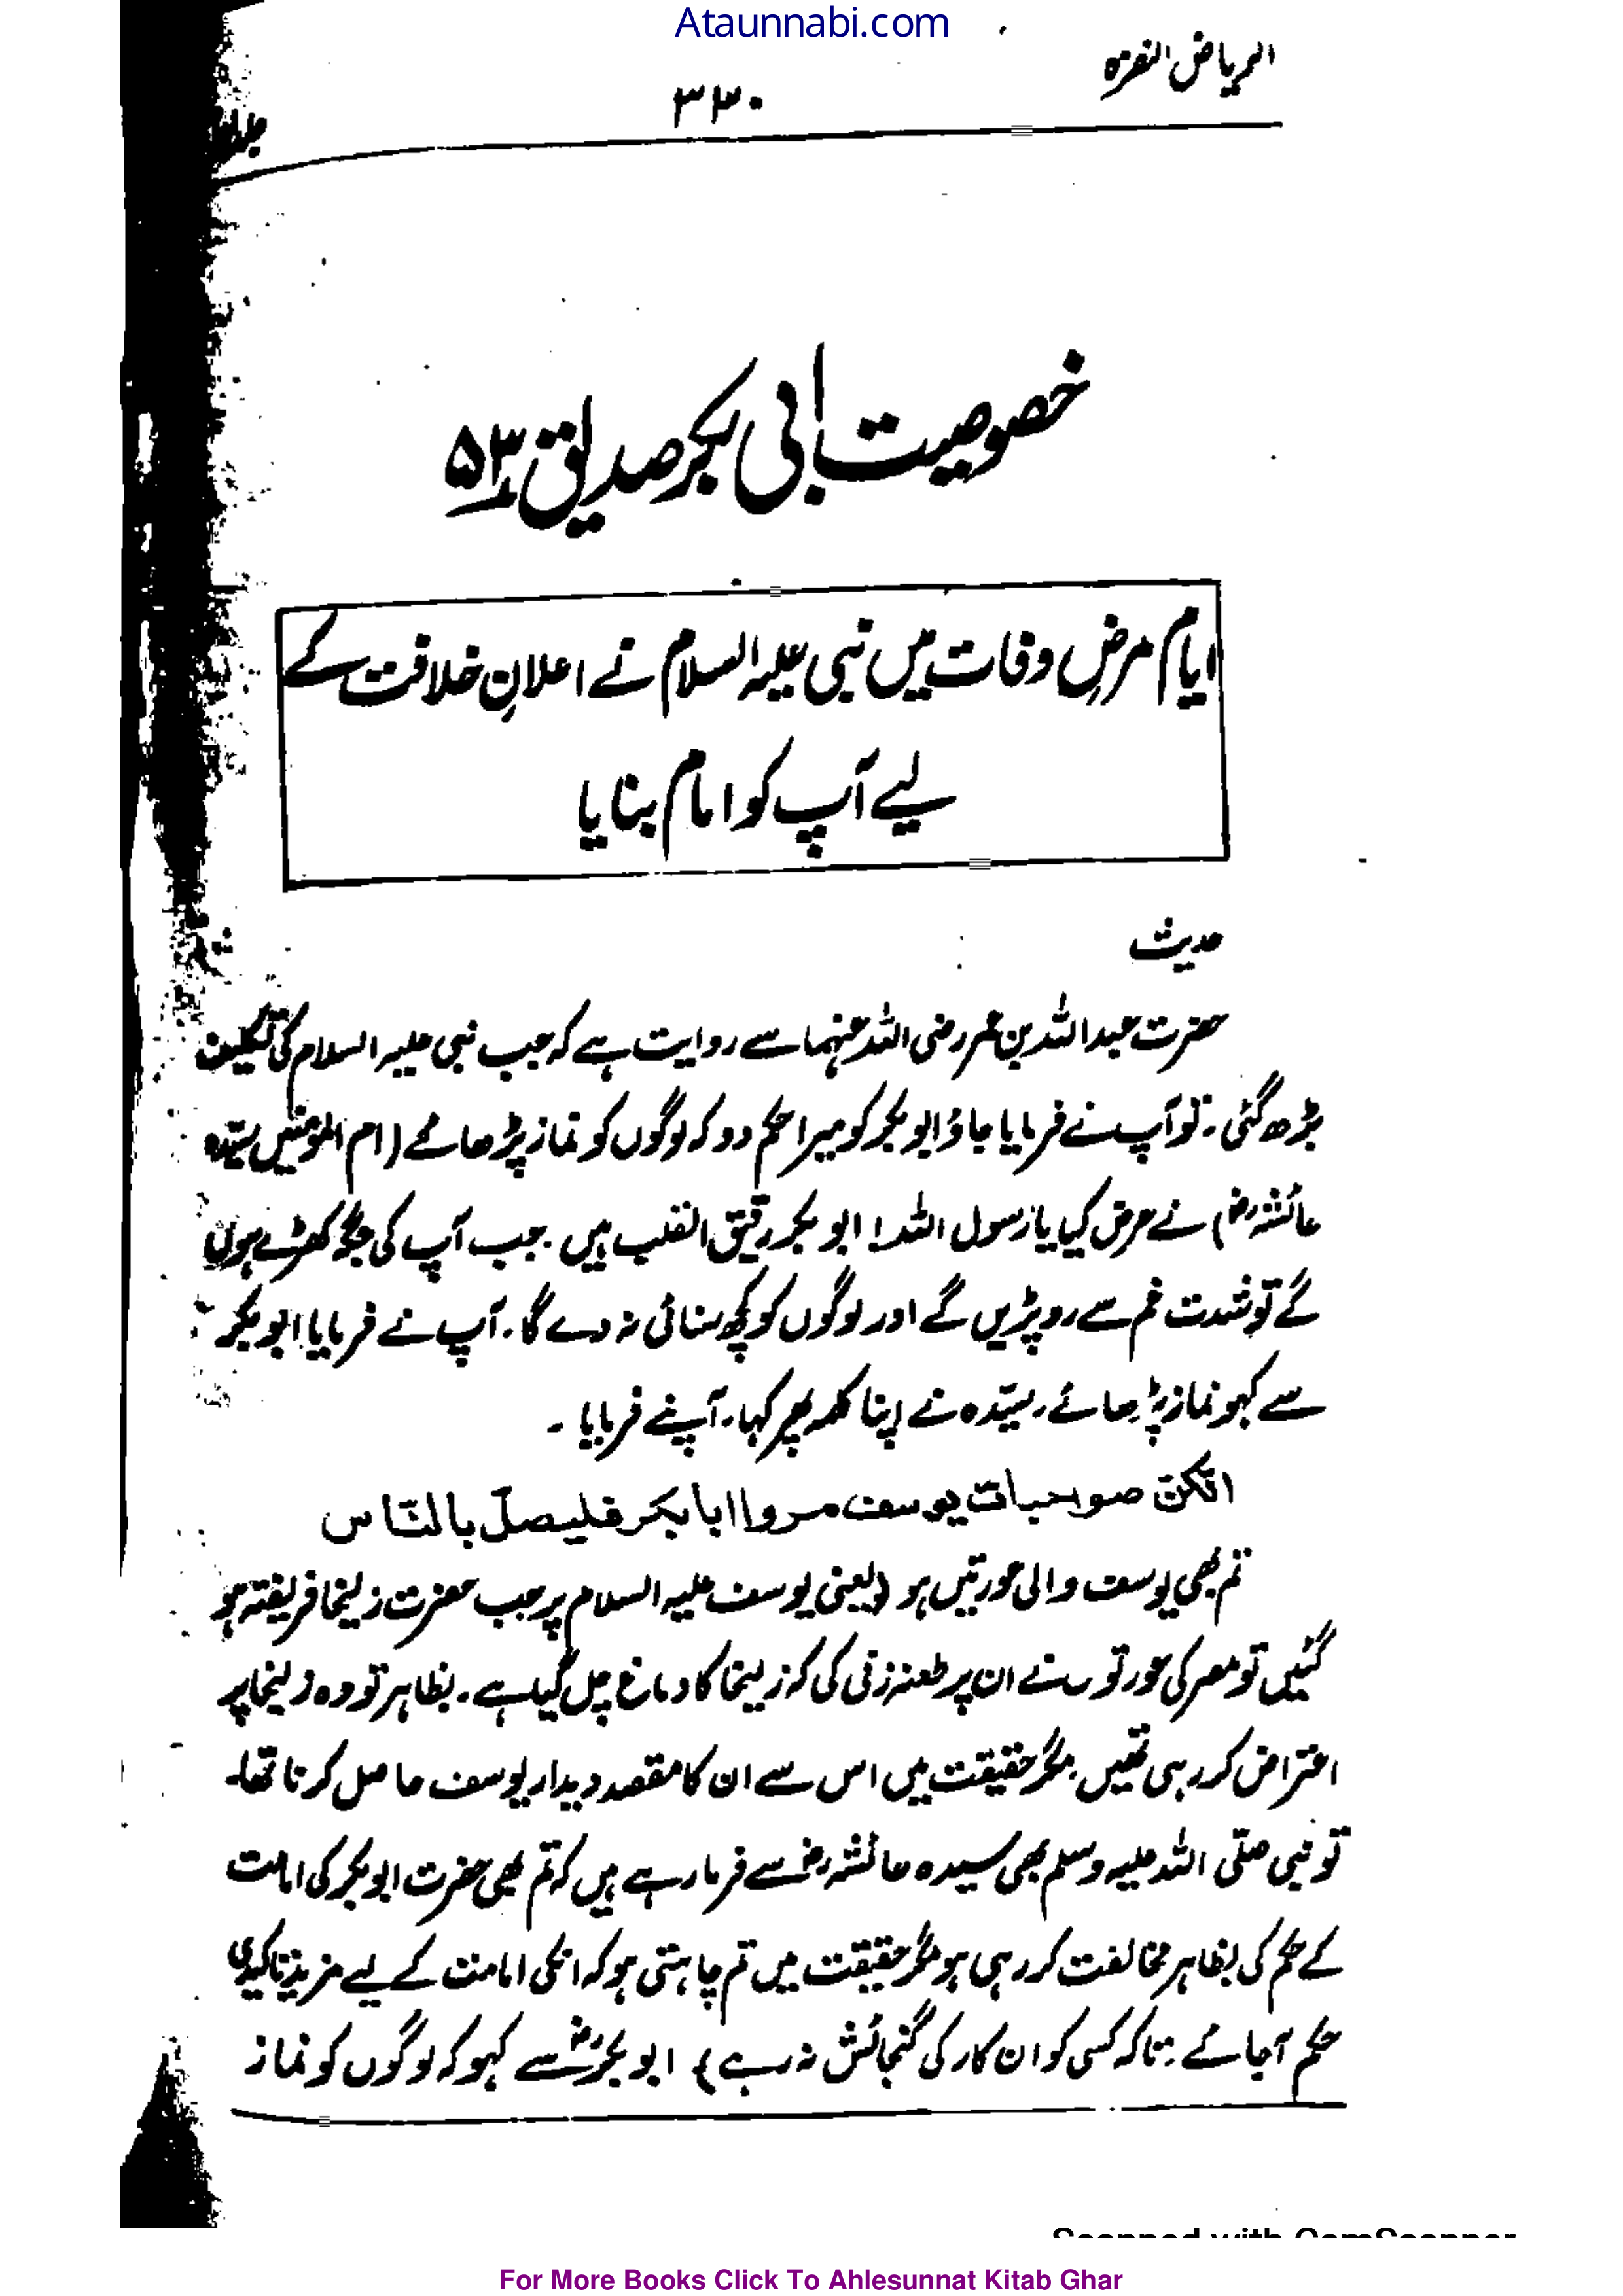 Ataunnabi.com
الریاض النضرۃ
۳۳۰
جلد
خصوصیت ابی بکر صدیق ۵۳
ایام مرضِ وفات میں نبی علیہ السلام نے اعلانِ خلافت کے
لیے آپ کو امام بنایا
حدیث
حضرت عبداللہ بن عمر رضی اللہ عنہما سے روایت ہے کہ جب نبی علیہ السلام کی تکلیف
بڑھ گئی۔ تو آپ نے فرمایا جاؤ ابو بکر کو میرا حکم دو کہ لوگوں کو نماز پڑھائے (ام المؤمنین سیّدہ
عائشہ رض) نے عرض کیا یا رسول اللہ! ابو بکر رقیق القلب ہیں۔ جب آپ کی جگہ کھڑے ہوں
گے تو شدت غم سے رو پڑیں گے اور لوگوں کو کچھ سنائی نہ دے گا۔ آپ نے فرمایا ابو بکر
سے کہو نماز پڑھائے۔ سیّدہ نے اپنا کلمہ پھر کہا۔ آپنے فرمایا ۔
انکنّ صواحبات یوسف مروا ابا بکر فلیصلّ بالنّاس
تم بھی یوسف والی عورتیں ہو (یعنی یوسف علیہ السلام پر جب حضرت زلیخا فریفتہ ہو
گئیں تو مصر کی عورتوں نے ان پر طعنہ زنی کی کہ زلیخا کا دماغ چل گیا ہے۔ بظاہر تو وہ زلیخا پر
اعتراض کر رہی تھیں۔ مگر حقیقت میں اس سے ان کا مقصد دیدار یوسف حاصل کرنا تھا۔
تو نبی صلّی اللہ علیہ وسلم بھی سیدہ عائشہ رض سے فرما رہے ہیں کہ تم بھی حضرت ابو بکر کی امامت
کے حکم کی بظاہر مخالفت کر رہی ہو مگر حقیقت میں تم چاہتی ہو کہ انکی امامت کے لیے مزید تاکیدی
حکم آجائے۔ تاکہ کسی کو ان کار کی گنجائش نہ رہے) ابو بکر رض سے کہو کہ لوگوں کو نماز
Scanned with CamScanner
For More Books Click To Ahlesunnat Kitab Ghar